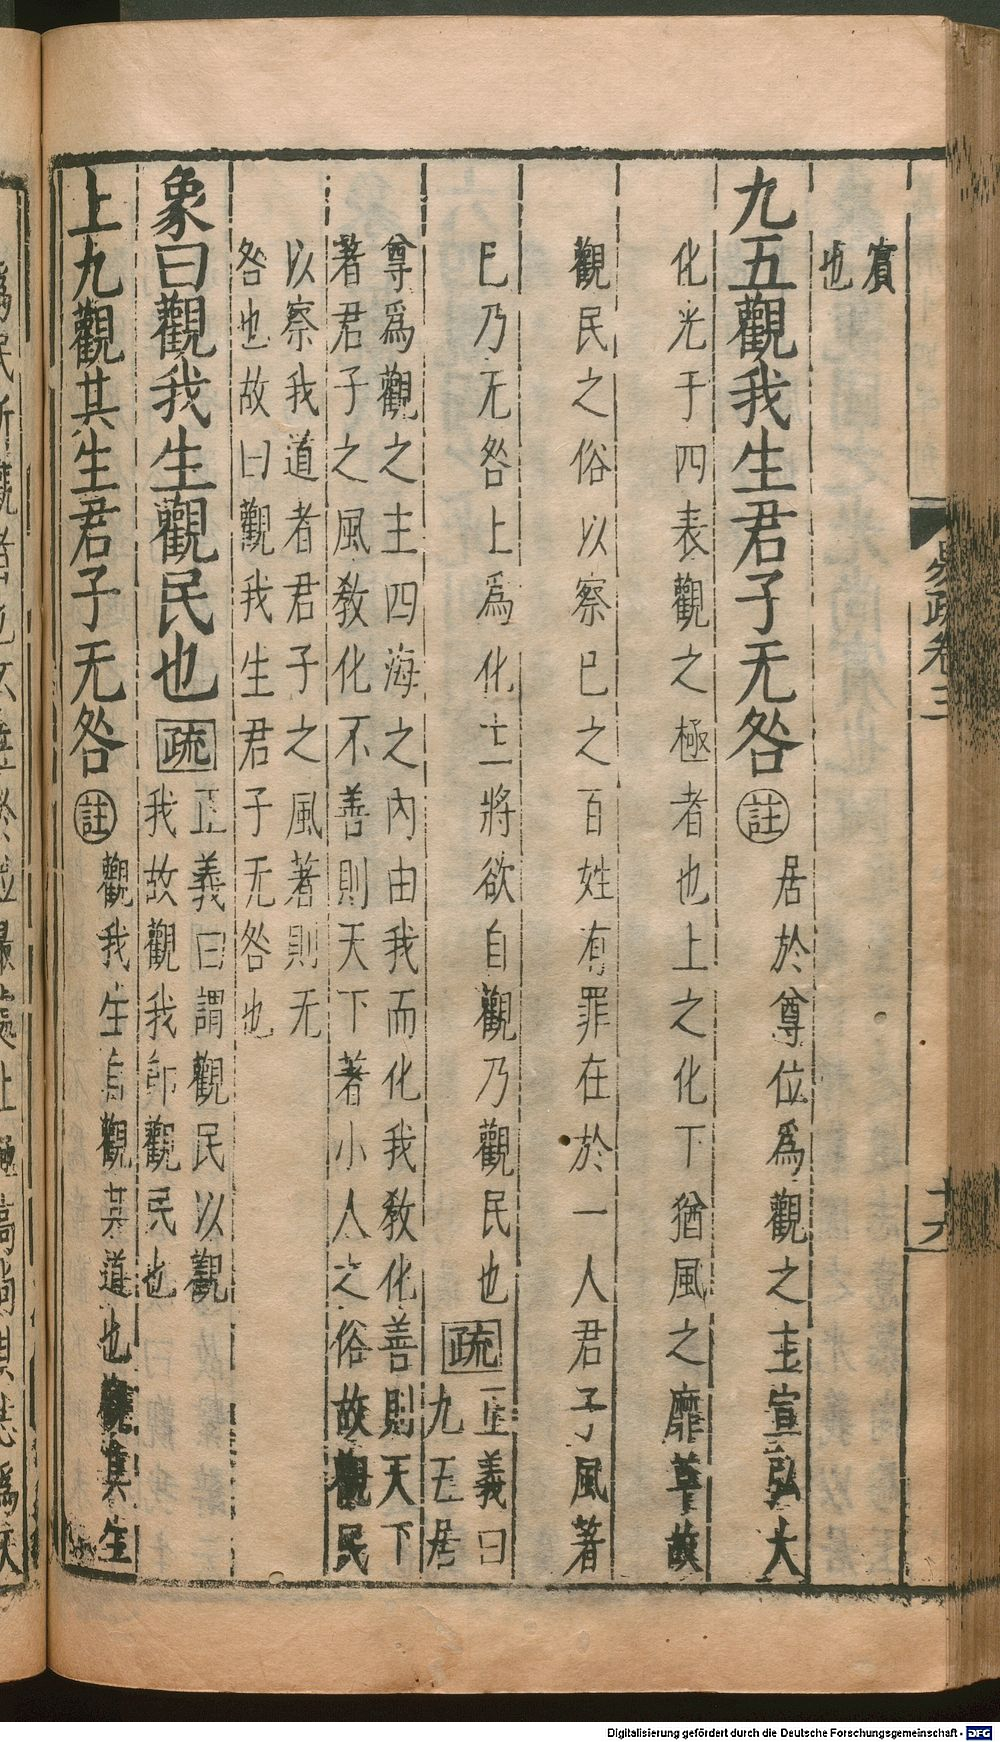 易疏卷三
十六
賔
也
九五觀我生君子无咎註居於尊位爲觀之主宣弘大
化光于四表觀之極者也上之化下猶風之靡草故
觀民之俗以察巳之百姓有罪在於一人君子風著
巳乃无咎上爲化主將欲自觀乃觀民也疏正義曰
九五居
尊爲觀之主四海之內由我而化我教化善則天下
著君子之風教化不善則天下著小人之俗故觀民
以察我道者君子之風著則无
咎也故曰觀我生君子无咎也
象曰觀我生觀民也疏正義曰謂觀民以觀
我故觀我卽觀民也
上九觀其生君子无咎註觀我生自觀其道也觀其生
爲民所觀者也
Digitalisierung gefördert durch die Deutsche Forschungsgemeinschaft - DFG